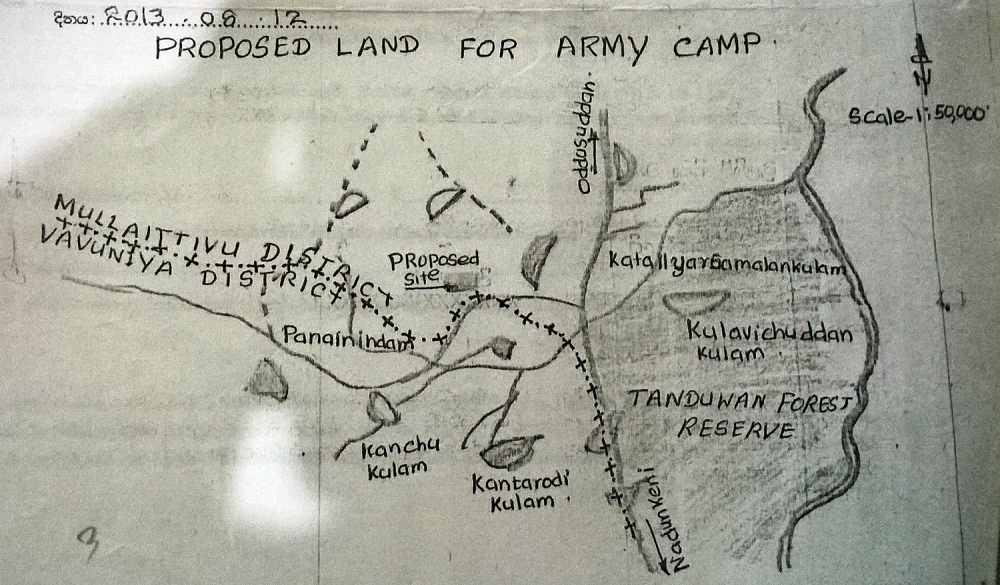 දිනය: 2013 . 08 . 12
PROPOSED LAND FOR ARMY CAMP.
N
Scale-1:50,000'
Oddusuddan.
MULLAITTIVU DISTRICT
VAVUNIYA DISTRICT
PROPOSED
Site
Katallyarsamalankulam
Panainindan
Kulavichuddan
Kulam.
TANDUWAN FOREST
RESERVE
Kanchu
Kulam
Kantarodi
Kulam.
Nadunkeni
3